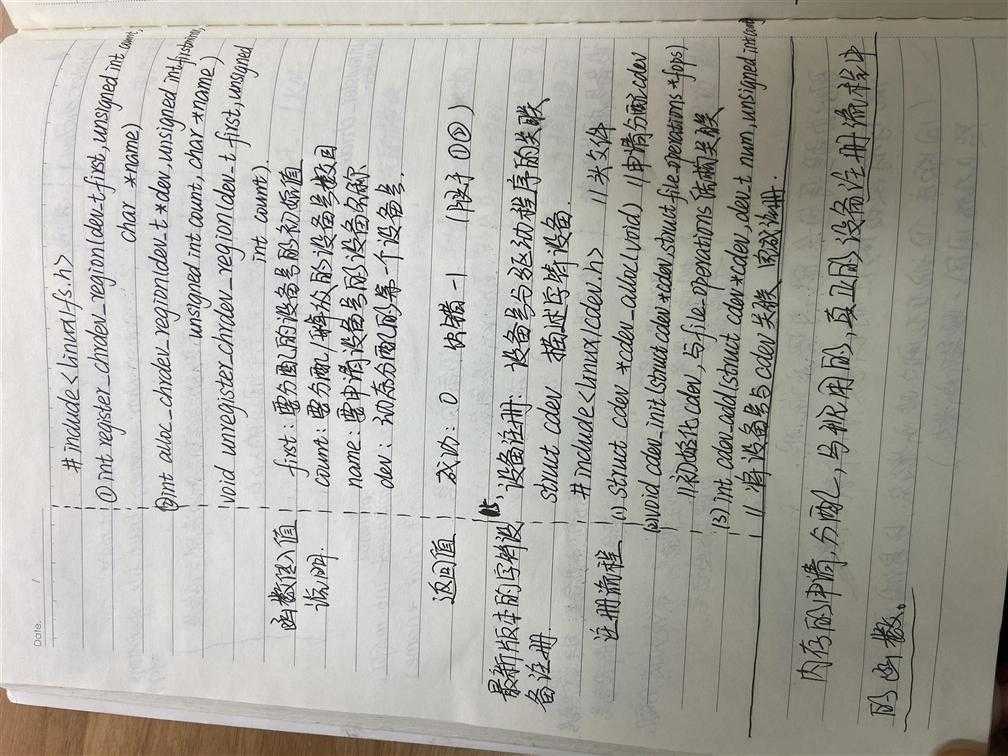 Date.
#include<linux/fs.h>
①int register_chrdev_region(dev_t first, unsigned int count,
char *name)
②int alloc_chrdev_region(dev_t *dev, unsigned int firstminor,
unsigned int count, char *name)
void unregister_chrdev_region(dev_t first, unsigned
int count).
函数传入值 first: 要分配的设备号的初始值
说明. count: 要分配/释放的设备号数目
name: 要申请设备号的设备名称
dev: 动态分配的第一个设备号.
返回值 成功: 0 出错 -1 ①②
最新版本的字符设 设备注册: 设备号与驱动程序的关联
备注册. struct cdev 描述字符设备.
#include<linux/cdev.h> //头文件
注册流程 (1) struct cdev *cdev_alloc(void) //申请分配cdev
(2)void cdev_init(struct cdev *cdev, struct file_operations *fops)
//初始化cdev, 与file_operations结构关联
(3)int cdev_add(struct cdev *cdev, dev_t num, unsigned int count)
//将设备号与cdev关联 完成注册.
内存的申请, 分配, 与机用的, 真正的设备注册流程中
的函数。